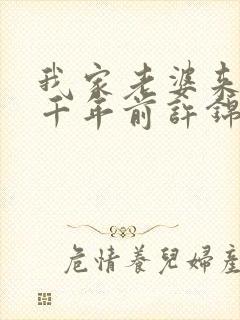 我家老婆来
千年前許錦
危情養兒婦產